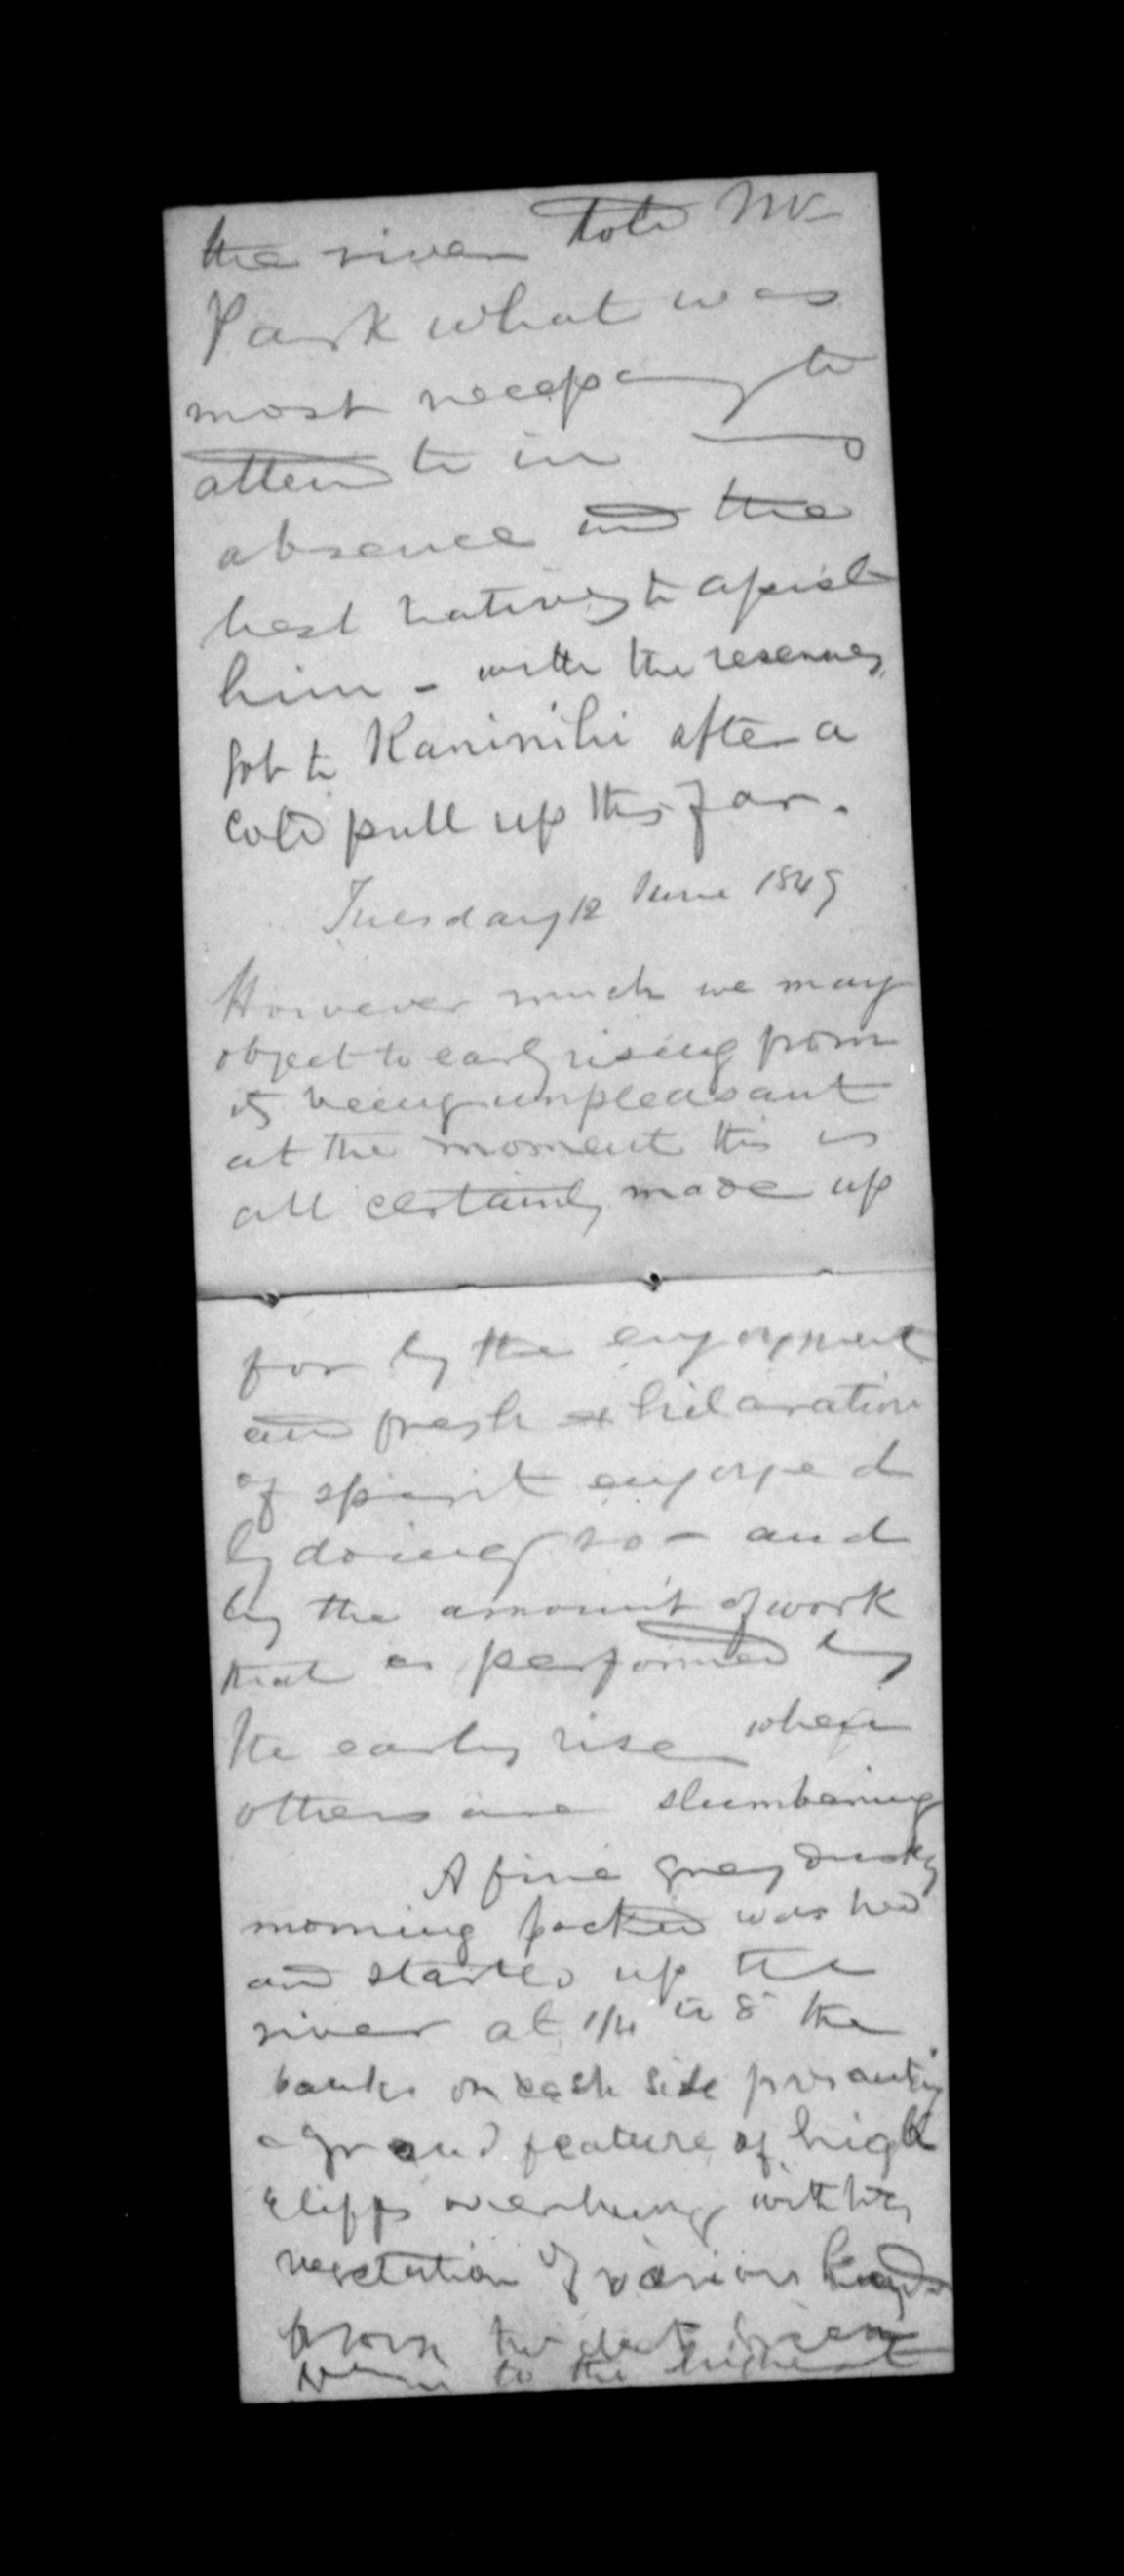 the river told Mr
Park what was
most necessary to
attend to in my
absence and the
best natives to assist
him - with the reserves
got to Kaninihi after a
cold pull up thus far.
Tuesday 12 June 1849
However much we may
object to early rising from
its being unpleasant
at the moment this is
all certainly made up
for by the enjoyment
and fresh exhilaration
of spirit enjoyed
by doing so - and
by the amount of work
that is performed by
the early riser when
others are slumbering
A fine grey dusky
morning packed washed
and started up the
river at 1/4 to 8 the
banks on each side presenting
a grand feature of high
cliffs overhung with
vegetation of various kinds
from the
to the highest